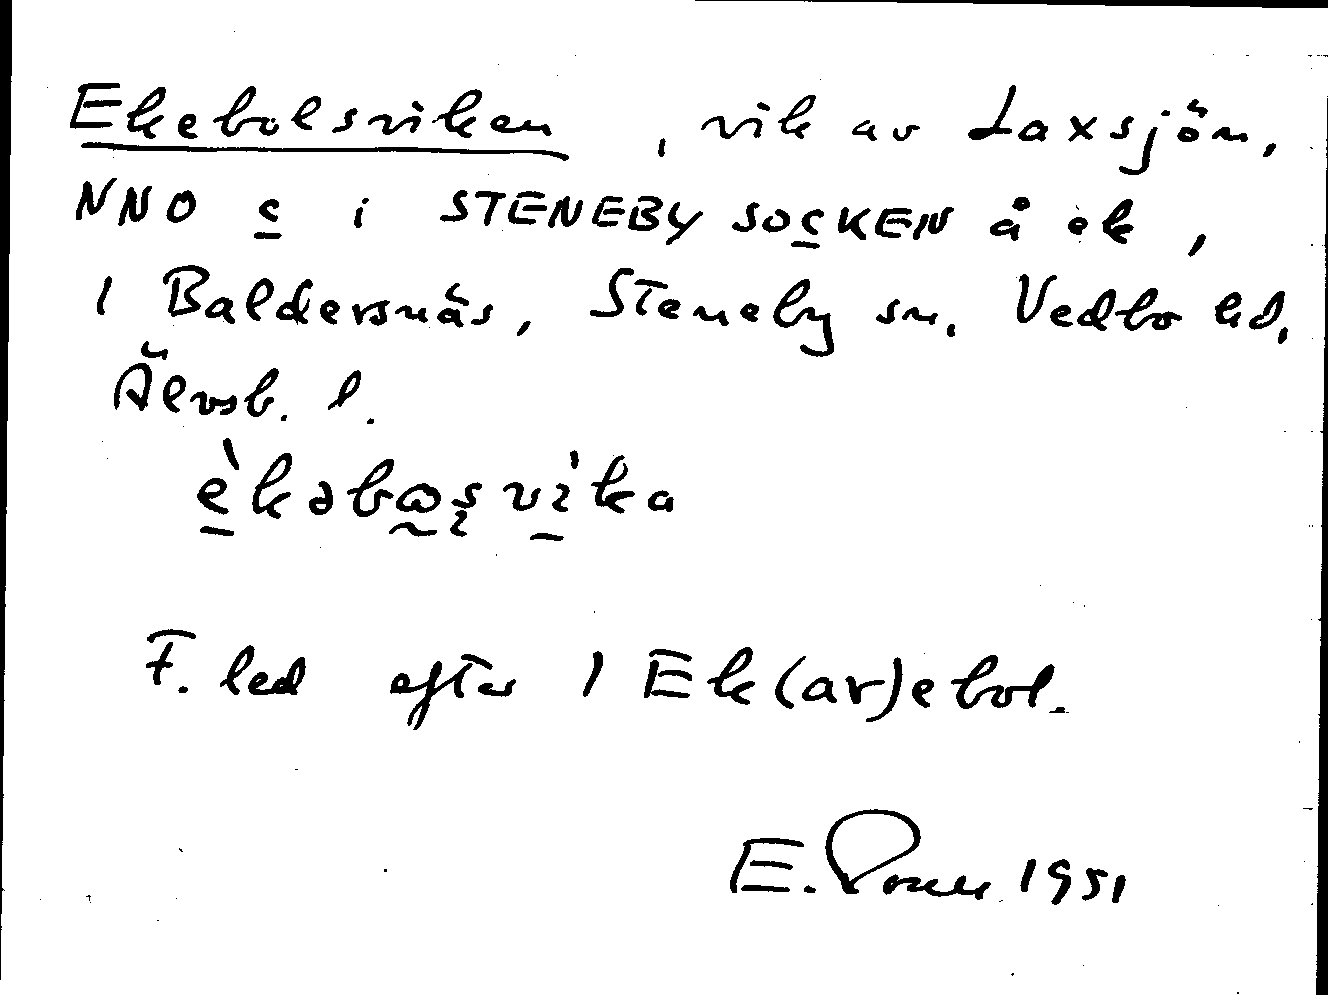 Ekebolsviken, vik av Laxsjön,
NNO c i STENEBY SOCKEN å ek,
1 Baldersnäs, Steneby sn. Vedbo hd.
Älvsb. l.
F. led efter 1 Ek(ar)ebol.
E. 1951